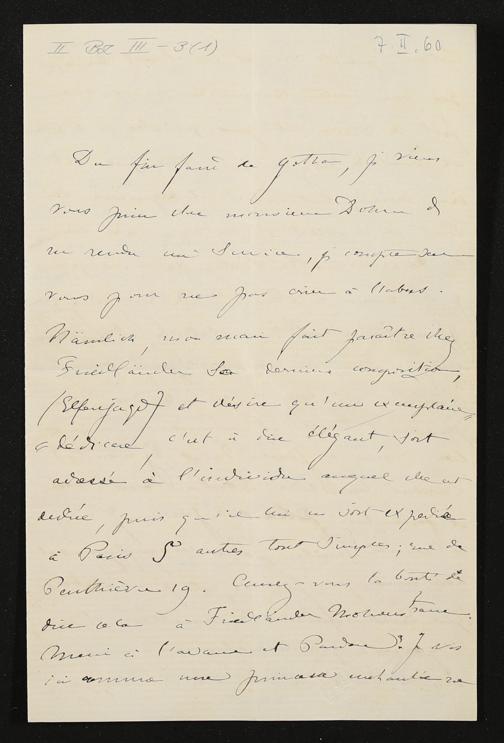 II BZ III – 3 (1)
7. II. 60
Du fin fond de Gotha, je viens
vous prier cher monsieur Dohm de
me rendre un Service, je compte sur
vous pour ne pas crier à l'abus.
Nämlich, mon mari fait paraître chez
Friedländer Sa dernière composition,
(Elfenjagd) et désire qu'un exemplaire
de dédicace, c'est à dire élégant, soit
adressé à l'individu auquel elle est
dédiée, puis qu'il lui en soit expédié
à Paris 5 autres tout Simples; rue de
Penthièvre 19. Aurez-vous la bonté de
dire cela à Friedländer
Merci à l'avance et Pardon? Je vis
ici comme une princesse enchantée